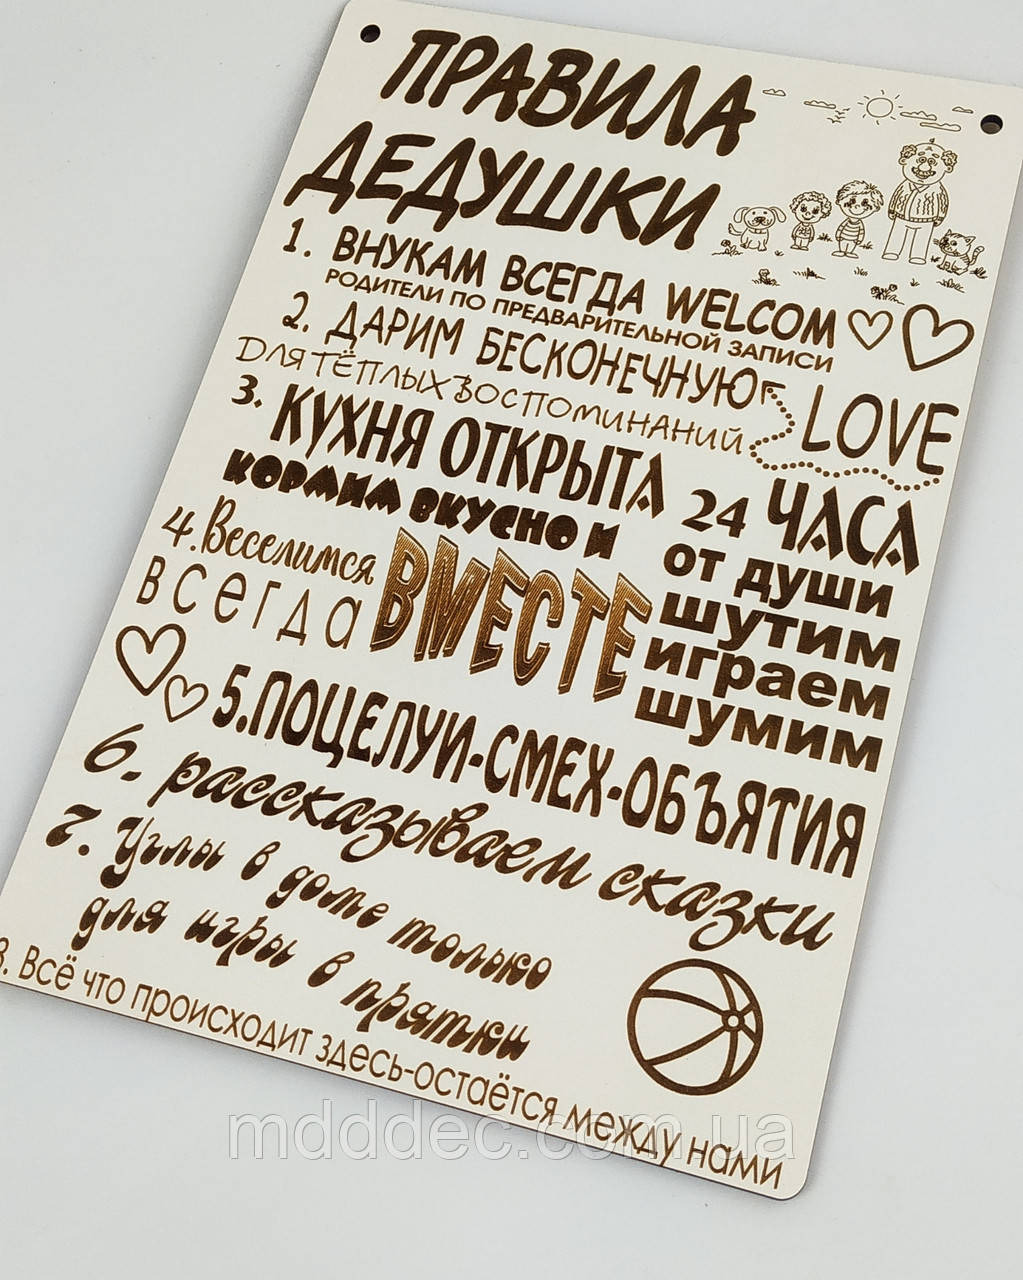 ПРАВИЛА
ДЕДУШКИ
1. ВНУКАМ ВСЕГДА WELCOM
РОДИТЕЛИ ПО ПРЕДВАРИТЕЛЬНОЙ ЗАПИСИ
2. ДАРИМ БЕСКОНЕЧНУЮ LOVE
ДЛЯ ТЁПЛЫХ ВОСПОМИНАНИЙ
3. КУХНЯ ОТКРЫТА 24 ЧАСА
КОРМИМ ВКУСНО И ОТ ДУШИ
4. Веселимся
всегда
ВМЕСТЕ
шутим
играем
шумим
5. ПОЦЕЛУИ-СМЕХ-ОБЪЯТИЯ
6. рассказываем сказки
7. Углы в доме только
для игры в прятки
8. Всё что происходит здесь-остаётся между нами
mdddec.com.ua